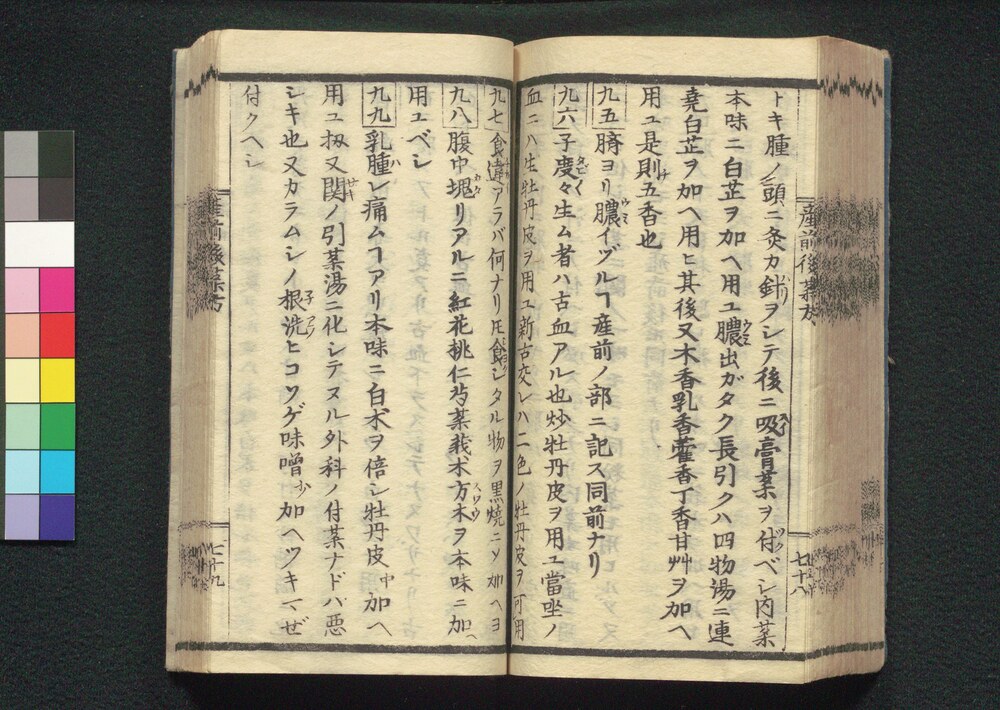 トキ腫ノ頭ニ灸カ針ヲシテ後ニ吸膏薬ヲ付ベシ内薬
本味ニ白芷ヲ加ヘ用ユ膿出ガタク長引クハ四物湯ニ連
堯白芷ヲ加ヘ用ヒ其後又木香乳香藿香丁香甘艸ヲ加ヘ
用ユ是則五香也
九五 臍ヨリ膿イヅルヿ産前ノ部ニ記ス同前ナリ
九六 子度々生ム者ハ古血アル也炒牡丹皮ヲ用ユ當坐ノ
血ニハ生牡丹皮ヲ用ユ新古交レハ二色ノ牡丹皮ヲ可用
九七 食違アラバ何ナリ𪜈食シタル物ヲ黒焼ニシ加ヘヨ
九八 腹中塊リアルニ紅花桃仁芍薬莪朮方木ヲ本味ニ加ヘ
用ユベシ
九九 乳腫レ痛ムヿアリ本味ニ白朮ヲ倍シ牡丹皮中加ヘ
用ユ扨又関ノ引薬湯ニ化シテヌル外科ノ付薬ナドハ悪
シキ也又カラムシノ根洗ヒコソゲ味噌少加ヘツキマゼ
付クヘシ
産前後薬方
七十八
産前後薬方
七十九